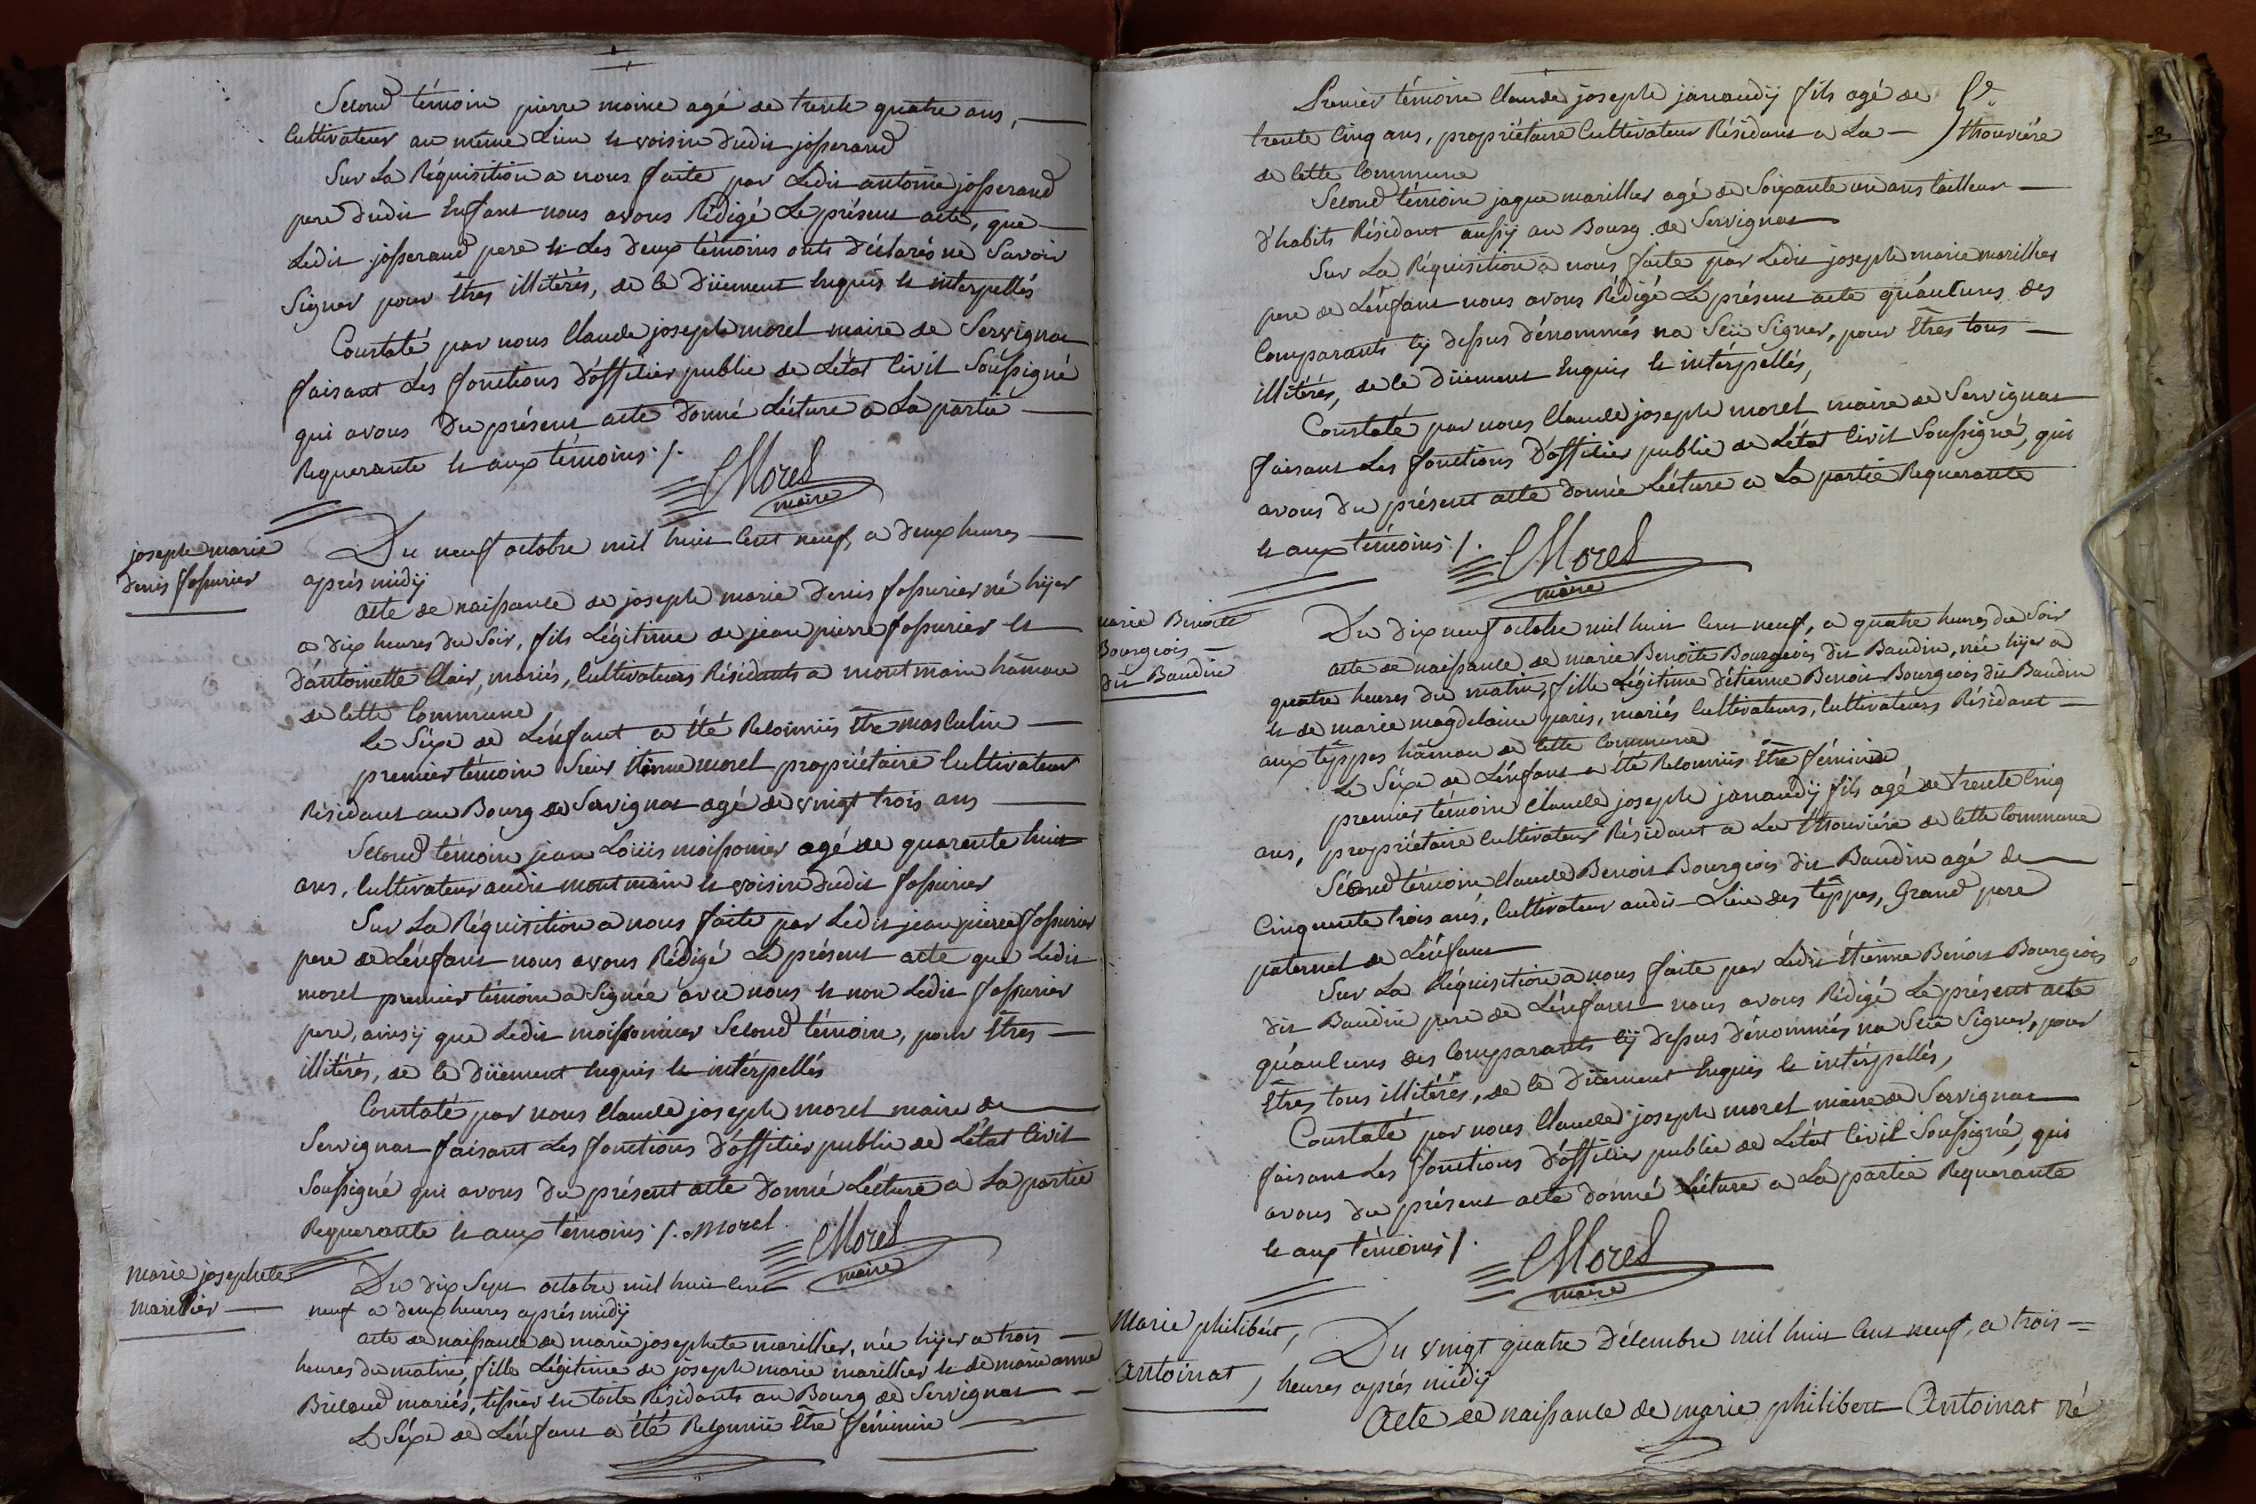 Second témoin pierre moine agé de trente quatre ans,
Cultivateur au même Lieu et voisin dudit josserand
Sur La Réquisition a nous faite par Ledit antoine josserand
pere dudit Enfant nous avons Rédigé Le présent acte, que
Ledit josserand pere et Les deux témoins ont déclarés ne Savoir
Signer pour êtres illitérés, de ce Düement Enquis et interpellés
Constaté par nous Claude joseph morel maire de Servignat
faisant Les fonctions D'officier public de L'état Civil Soussigné
qui avons Du présent acte Donné Lécture a La partie
Requerante et aux témoins ./.
CMorel
maire
joseph marie
denis fossurier
Du neuf octobre mil huit Cent neuf, a deux heures
aprés midÿ
acte de naissance de joseph marie denis fossurier né hÿer
a dix heures du Soir, fils Légitime de jean pierre fossurier et
D'antoinette Clair, mariés, Cultivateurs Résidants a montmain hâmau
de Cette Commune
Le Séxe de L'énfant a été Reconnüs être masculin
premier témoin Sieur étienne morel propriétaire Cultivateur
Résidant au Bourg de Servignat agé de vingt trois ans
Second témoin jean Loüis moissonier agé de quarente huit
ans, Cultivateur audit montmain et voisin dudit fossurier
Sur La Réquisition a nous faite par Ledit jean pierre fossurier
pere de L'énfant nous avons Rédigé Le présent acte que Ledit
morel premier témoin a Signée avec nous et non Ledit fossurier
pere, ainsÿ que Ledit moissonnier Second témoin, pour êtres
illitérés, de ce düement Enquis et intérpellés
Constaté par nous Claude joseph morel maire de
Servignat faisant Les fonctions D'officier public de L'état Civil
Soussigné qui avons du présent acte Donné Lécture a La partie
Requerante et aux témoins ./. morel
CMorel
maire
marie josephete
marillier
Du dix Sept octobre mil huit Cent
neuf a deux heures aprés midÿ
acte de naissance de marie josephete marillier, née hÿer a trois
heures du matin, fille Légitime de joseph marie marillier et de marie anne
mariés, tissier en toile Résidants au Bourg de Servignat
Le Séxe de L'énfant a été Reconnüe être féminin
Premier témoin Claude joseph janaudÿ fils agé de
trente Cinq ans, propriétaire Cultivateur Résidant a La
thouviére
de Cette Commune
Second témoin jaque marillier agé de Soixante un ans tailleur
d'habits Résidant aussÿ au Bourg de Servignat
Sur La Réquisition a nous faite par Ledit joseph marie marillier
pere de L'énfant nous avons Rédigé Le présent acte qu'áucuns des
Comparants cÿ dessus dénommés na Seü Signer, pour êtres tous
illitérés, de ce düement Enquis et intérpellés,
Constaté par nous Claude joseph morel maire de Servignat
faisant Les fonctions D'officier public de L'état Civil Soussigné, qui
avons du présent acte donnée Lécture a La partie Requerante
et aux témoins ./.
CMorel
maire
marie Benoite
Bourgeois
dit Baudin
Du dix neuf octobre mil huit Cent neuf, a quatre heures du Soir
acte de naissance de marie Benoite Bourgeois dit Baudin, née hÿer a
quatre heures du matin, fille Légitime d'étienne Benoit Bourgeois dit Baudin
et de marie magdelaine paris, mariés Cultivateurs, Cultivateurs Résidant
aux téppes hâmau de Cette Commune
Le Séxe de L'énfant a été Reconnüs être féminin
premier témoin Claude joseph janaudÿ fils agé de trente Cinq
ans, propriétaire Cultivateur Résidant a La thouviére de Cette Commune
Sécond témoin Claude Benoit Bourgeois dit Baudin agé de
Cinquente trois ans, Cultivateur audit Lieu des téppes, Grand pere
paternel de L'énfant
Sur La Réquisition a nous faite par Ledit étienne Benoit Bourgeois
dit Baudin pere de L'énfant nous avons Rédigé Le présent acte
qu'áucuns des Comparants cÿ dessus dénommés na Seü Signer, pour
êtres tous illitérés, de ce düement Enquis et intérpellés,
Constaté par nous Claude joseph morel maire de Servignat
faisant Les fonctions D'officier public de L'état Civil Soussigné, qui
avons du présent acte donné Lécture a La partie Requerante
et aux témoins ./.
CMorel
maire
Marie philibert,
Antoinat,
Du vingt quatre Décembre mil huit Cent neuf, a trois
heures aprés midÿ
Acte de naissance de marie philibert Antoinat né